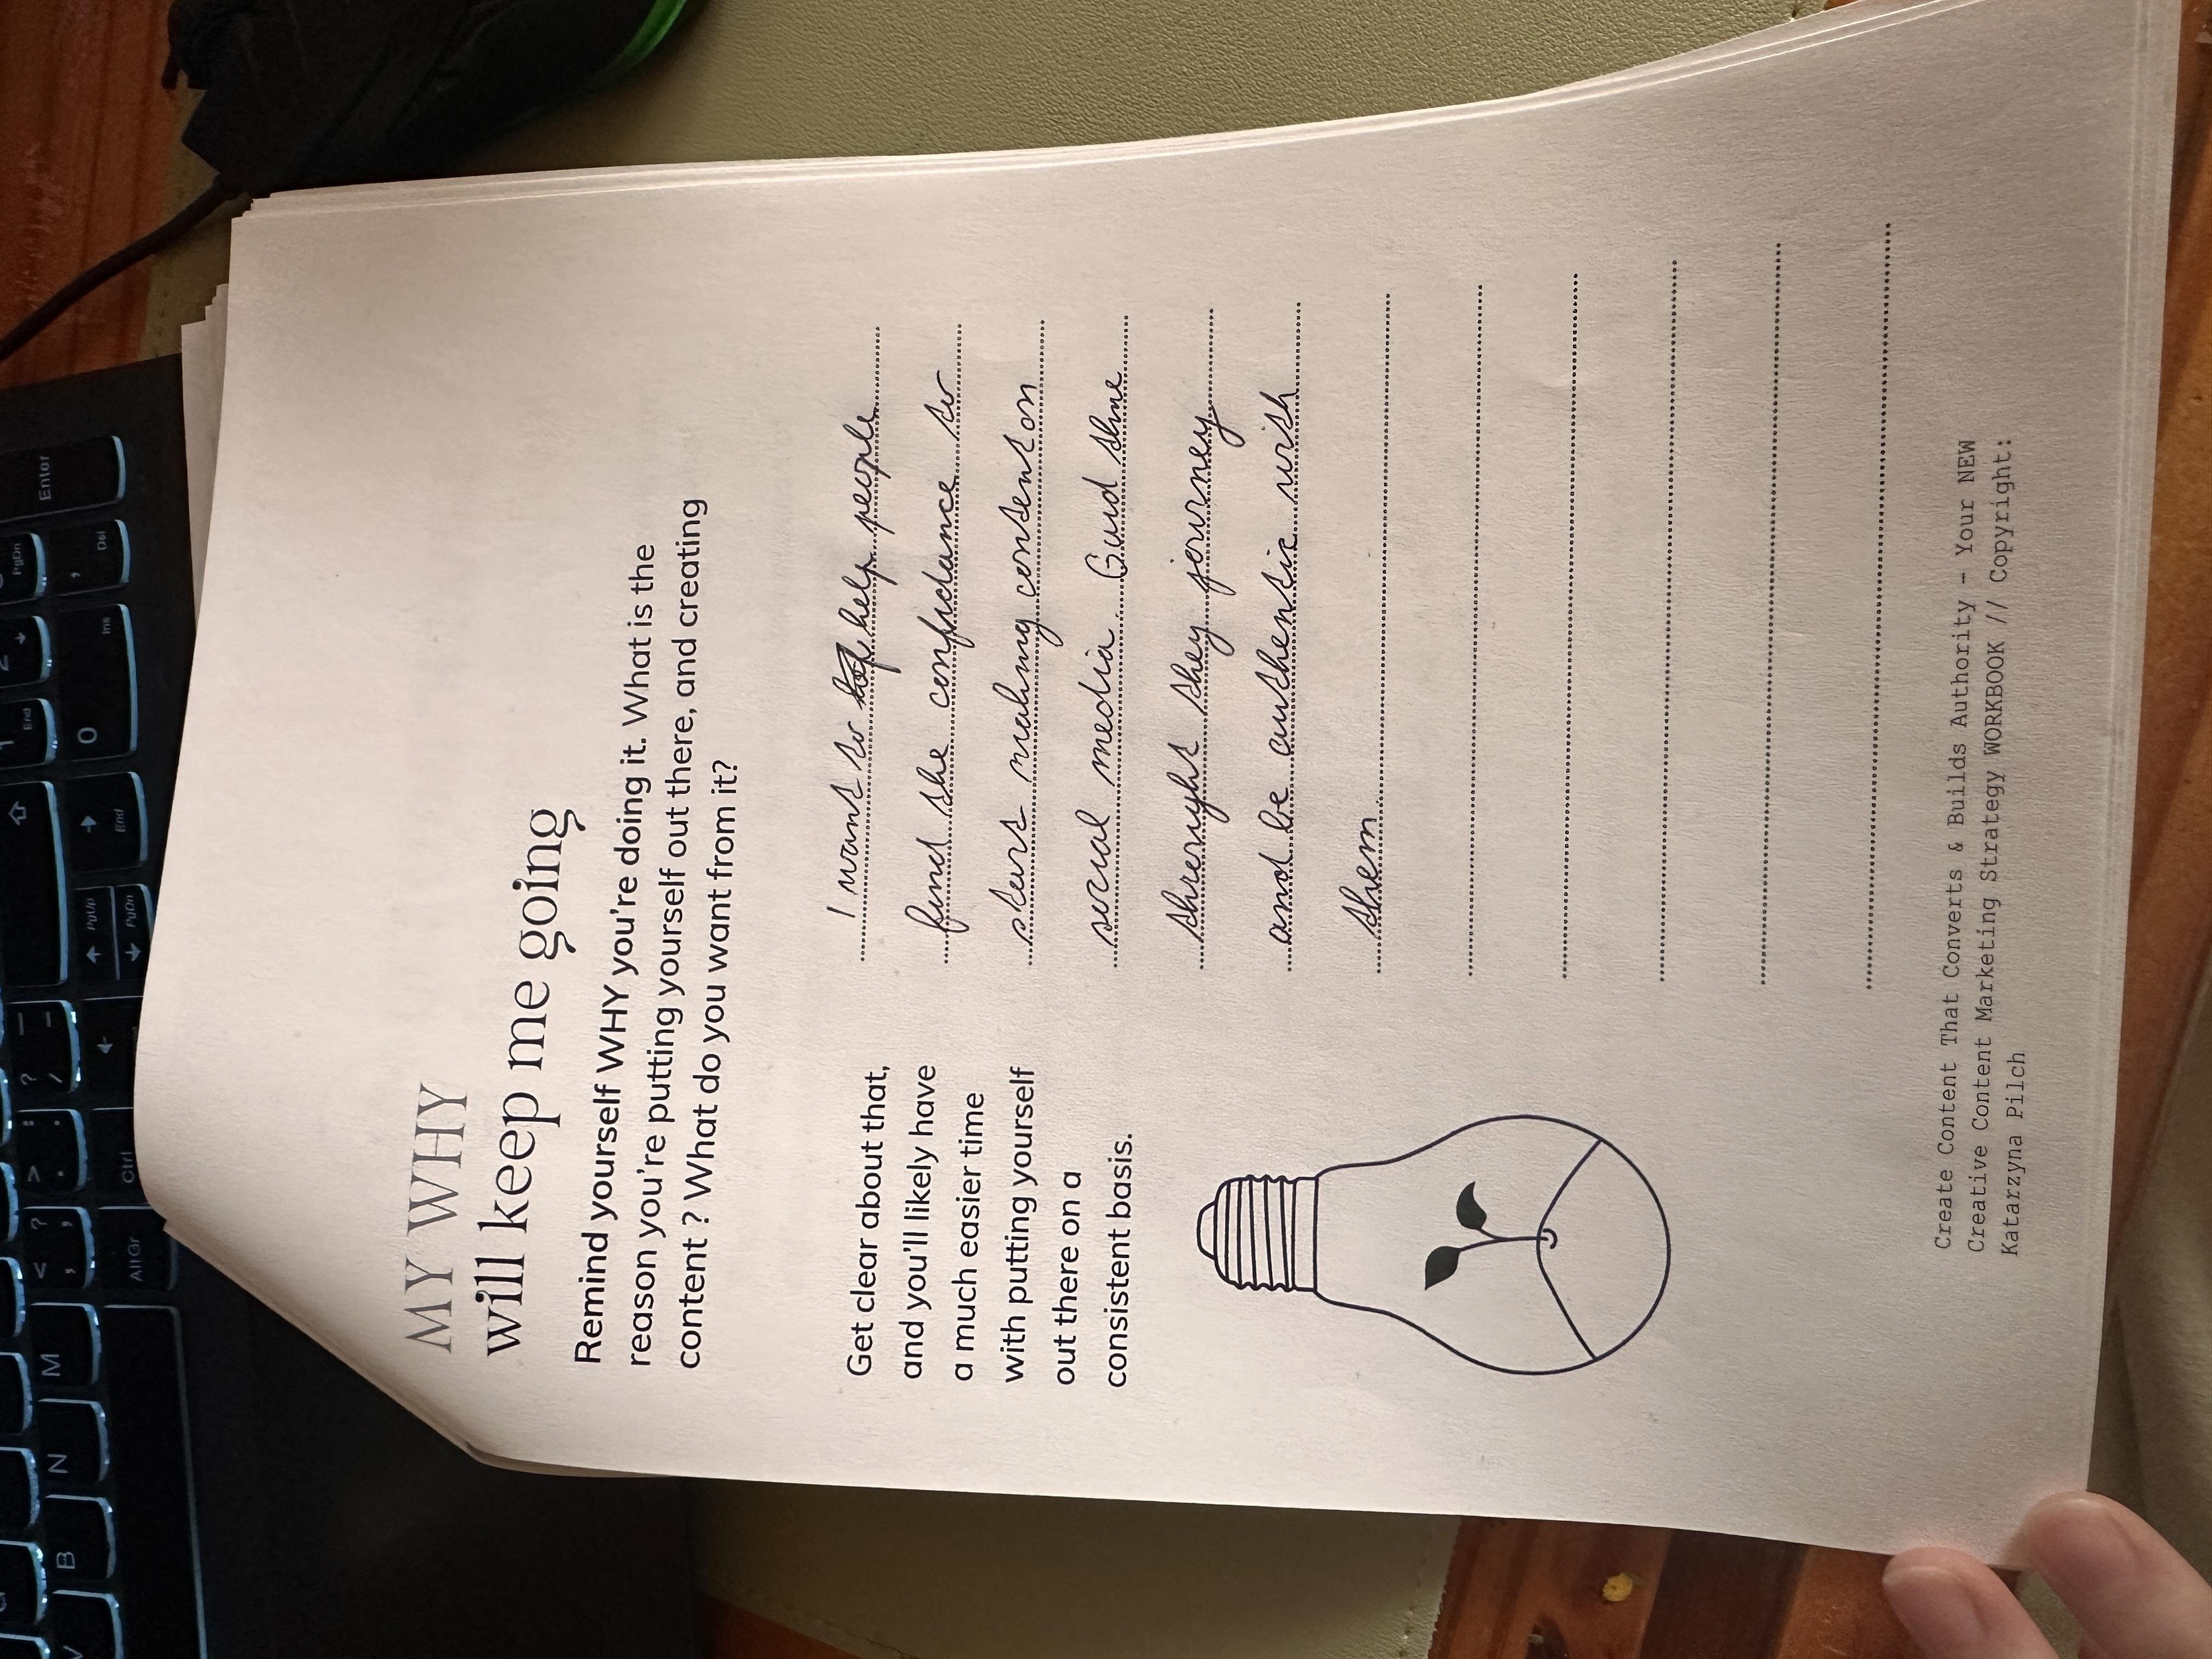 MY WHY
will keep me going
Remind yourself WHY you're doing it. What is the
reason you're putting yourself out there, and creating
content ? What do you want from it?
Get clear about that,
and you'll likely have
a much easier time
with putting yourself
out there on a
consistent basis.
I want to help people
find the confidance to
start making content on
social media. Guid thme
throught they journey
and be authentic with
them.
Create Content That Converts & Builds Authority - Your NEW
Creative Content Marketing Strategy WORKBOOK // Copyright:
Katarzyna Pilch
Enter
PgDn
End
Del
0
Ins
End
PgUp
PgDn
?
/
>
.
Ctrl
<
?
,
;
Alt Gr
M
N
B
V